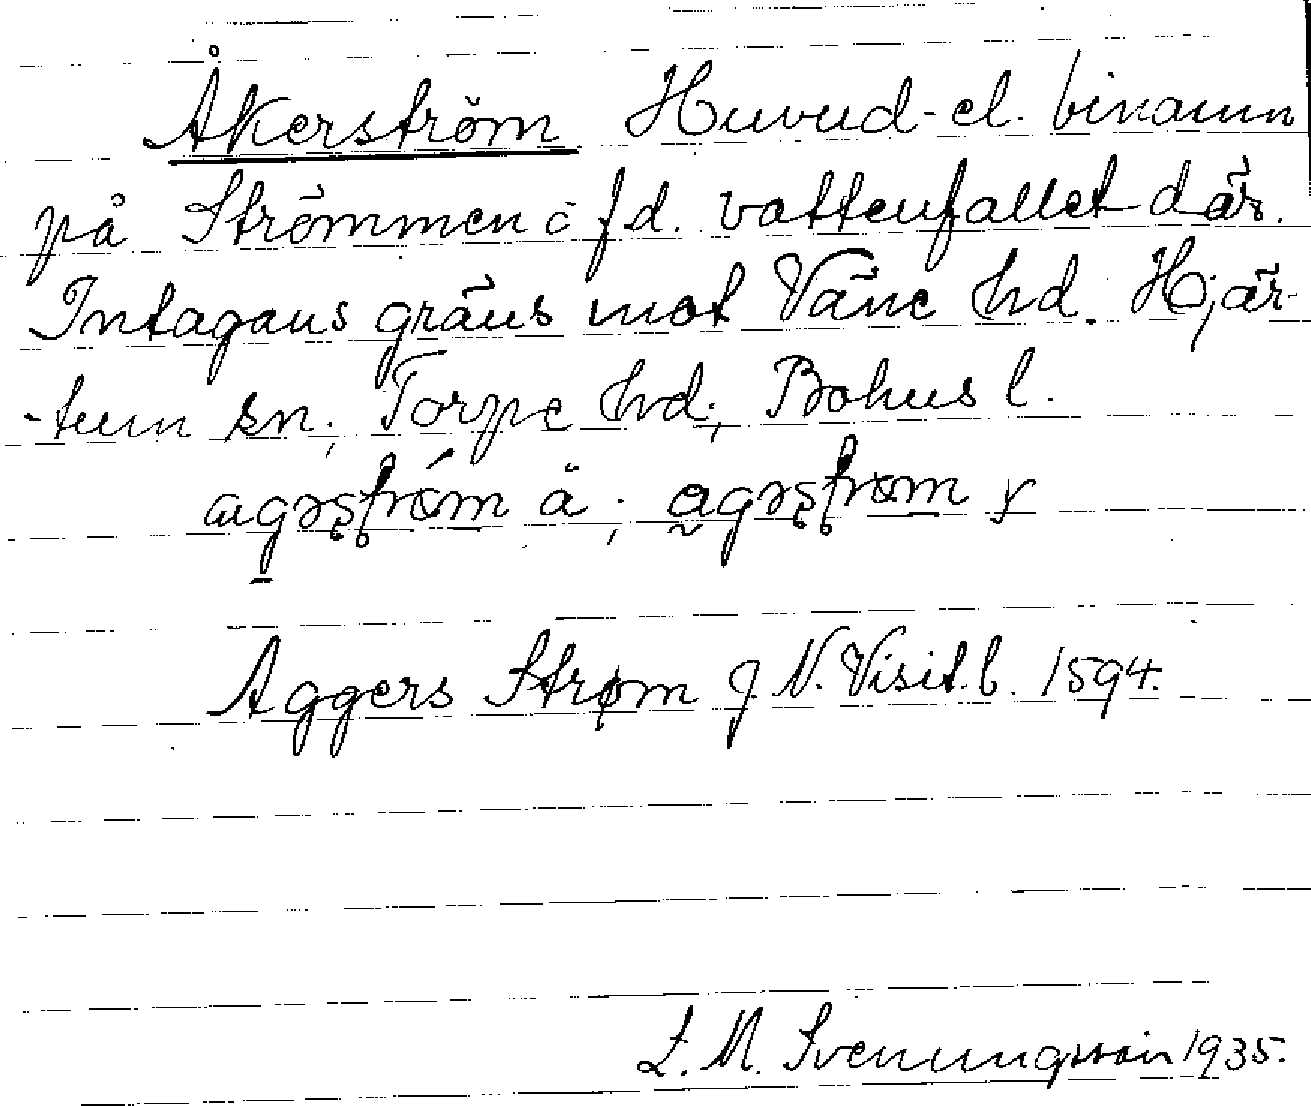 Åkerström Huvud- el. binamn
på Strömmen i f d. vattenfallet där.
Intagans gräns mot Väne hd. Hjär-
-tum sn; Torpe hd; Bohus l.
agəʂʈróm ä ; agəʂʈrøm y
Aggers Strøm J. N. Visit.b. 1594.
L. M. Svenungsson 1935.